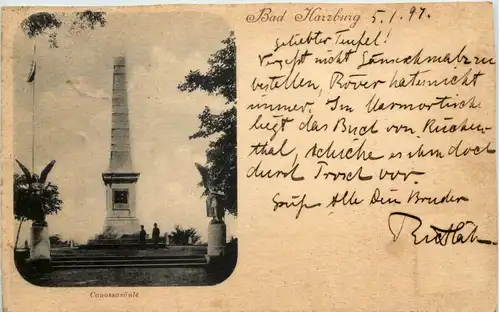 Bad Harzburg 5.1.97.
geliebter Teufel!
Vergeßt nicht Gänseschmalz zu
bestellen, Röver hat es nicht
immer. Im Marmortische
liegt das Buch von
thal, schicke es ihm doch
durch Trost vor.
Grüß Alle Dein Bruder
Canossasäule